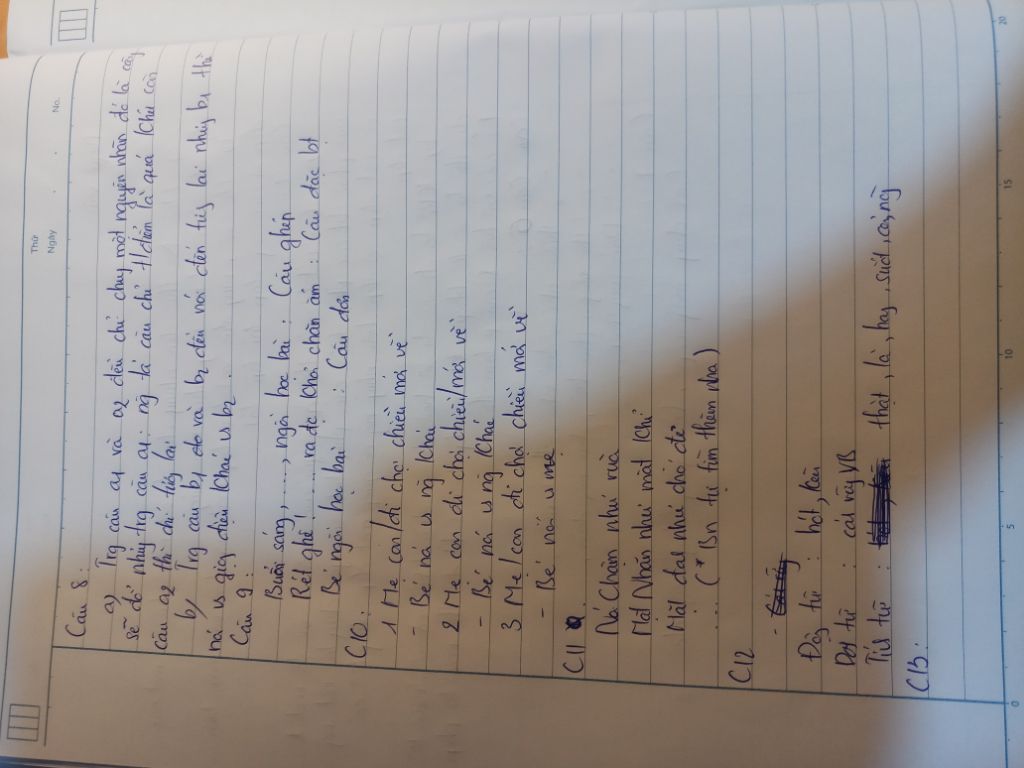 Thứ
Ngày . . No.
Câu 8:
a) Trg câu a1 và a2 đều chỉ chung một nguyên nhân đó là cây
sẽ đổ nhưg trg câu a1: ng ta câu chỉ t/điểm là quá khứ còn
câu a2 thì chỉ tương lai
b) Trg câu b1 và b2 đều nói đến tương lai nhưg b1 thì
nói vs giọg điệu khác vs b2.
Câu 9:
Buổi sáng, ...., ngồi học bài: Câu ghép
Rét ghê! .... ra để khỏi chăn ấm: Câu đặc bt
Bé ngồi học bài : Câu đơn
C10:
1 Mẹ con/đi chợ chiều mới về
- Bé nói vs ng khác
2 Mẹ con đi chợ chiều/mới về
- Bé nói vs ng khác
3 Mẹ/con đi chợ chiều mới về
- Bé nói v mẹ
C11
Nó Chằn như mà
Mặt Nhăn như mặt khỉ
Mặt dai như chó đẻ
.... (* Bn tự tìm thêm nha)
C12
-
Động từ : hót, kêu
Dah từ : cái VB
Tíh từ : thật, là, hay,
C13:
0 5 10 15 20